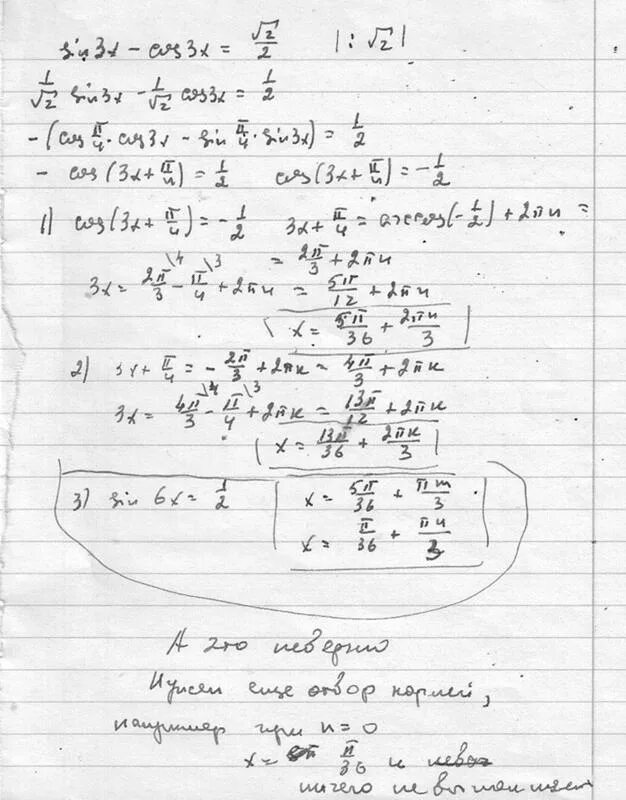 sin 3x − cos 3x = √2/2 | : √2 |
1/√2 sin 3x − 1/√2 cos 3x = 1/2
−(cos π/4 · cos 3x − sin π/4 · sin 3x) = 1/2
− cos (3x + π/4) = 1/2 cos (3x + π/4) = −1/2
1) cos (3x + π/4) = −1/2 3x + π/4 = arccos(−1/2) + 2πn =
= 2π/3 + 2πn
3x = 2π/3 \4 − π/4 \3 + 2πn = 5π/12 + 2πn
x = 5π/36 + 2πn/3
2) 3x + π/4 = − 2π/3 + 2πк = 4π/3 + 2πк
3x = 4π/3 \4 − π/4 \3 + 2πк = 13π/12 + 2πк
x = 13π/36 + 2πк/3
3) sin 6x = 1/2 x = 5π/36 + πm/3
x = π/36 + πn/3
А это неверно
Нужен еще отбор корней,
например при n = 0
x = π/36 и
ничего не выполняет